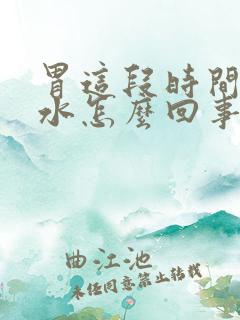 胃這段時間
水怎麽回事
曲江池
未经同意禁止转载